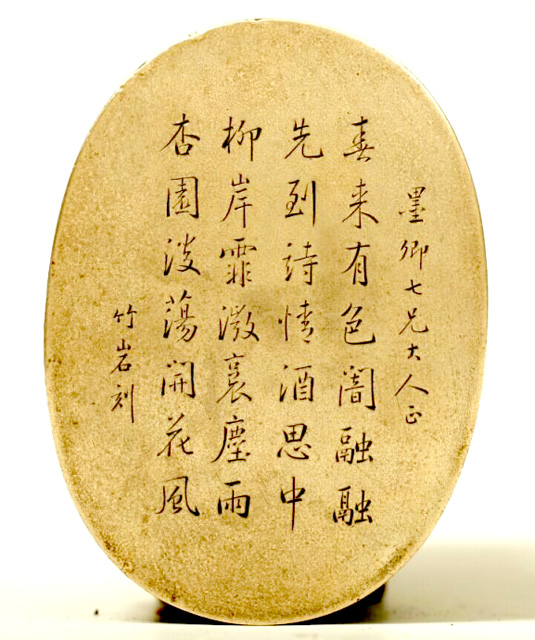 墨卿七兄大人正
春来有色闇融融
先到詩情酒思中
柳岸霏微裛塵雨
杏園淡蕩開花風
竹岩刻